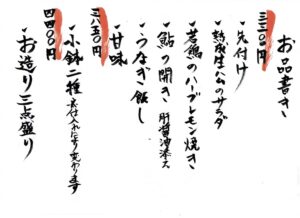 お品書き
三三〇〇円
・先付け
・熟成生ハムのサラダ
・若鶏のハーブレモン焼き
・鮎の開き 肝醤油添え
・うなぎ飯し
・甘味
三八五〇円
・小鉢二種 ※仕入れにより変わります
四四〇〇円
・お造り三点盛り